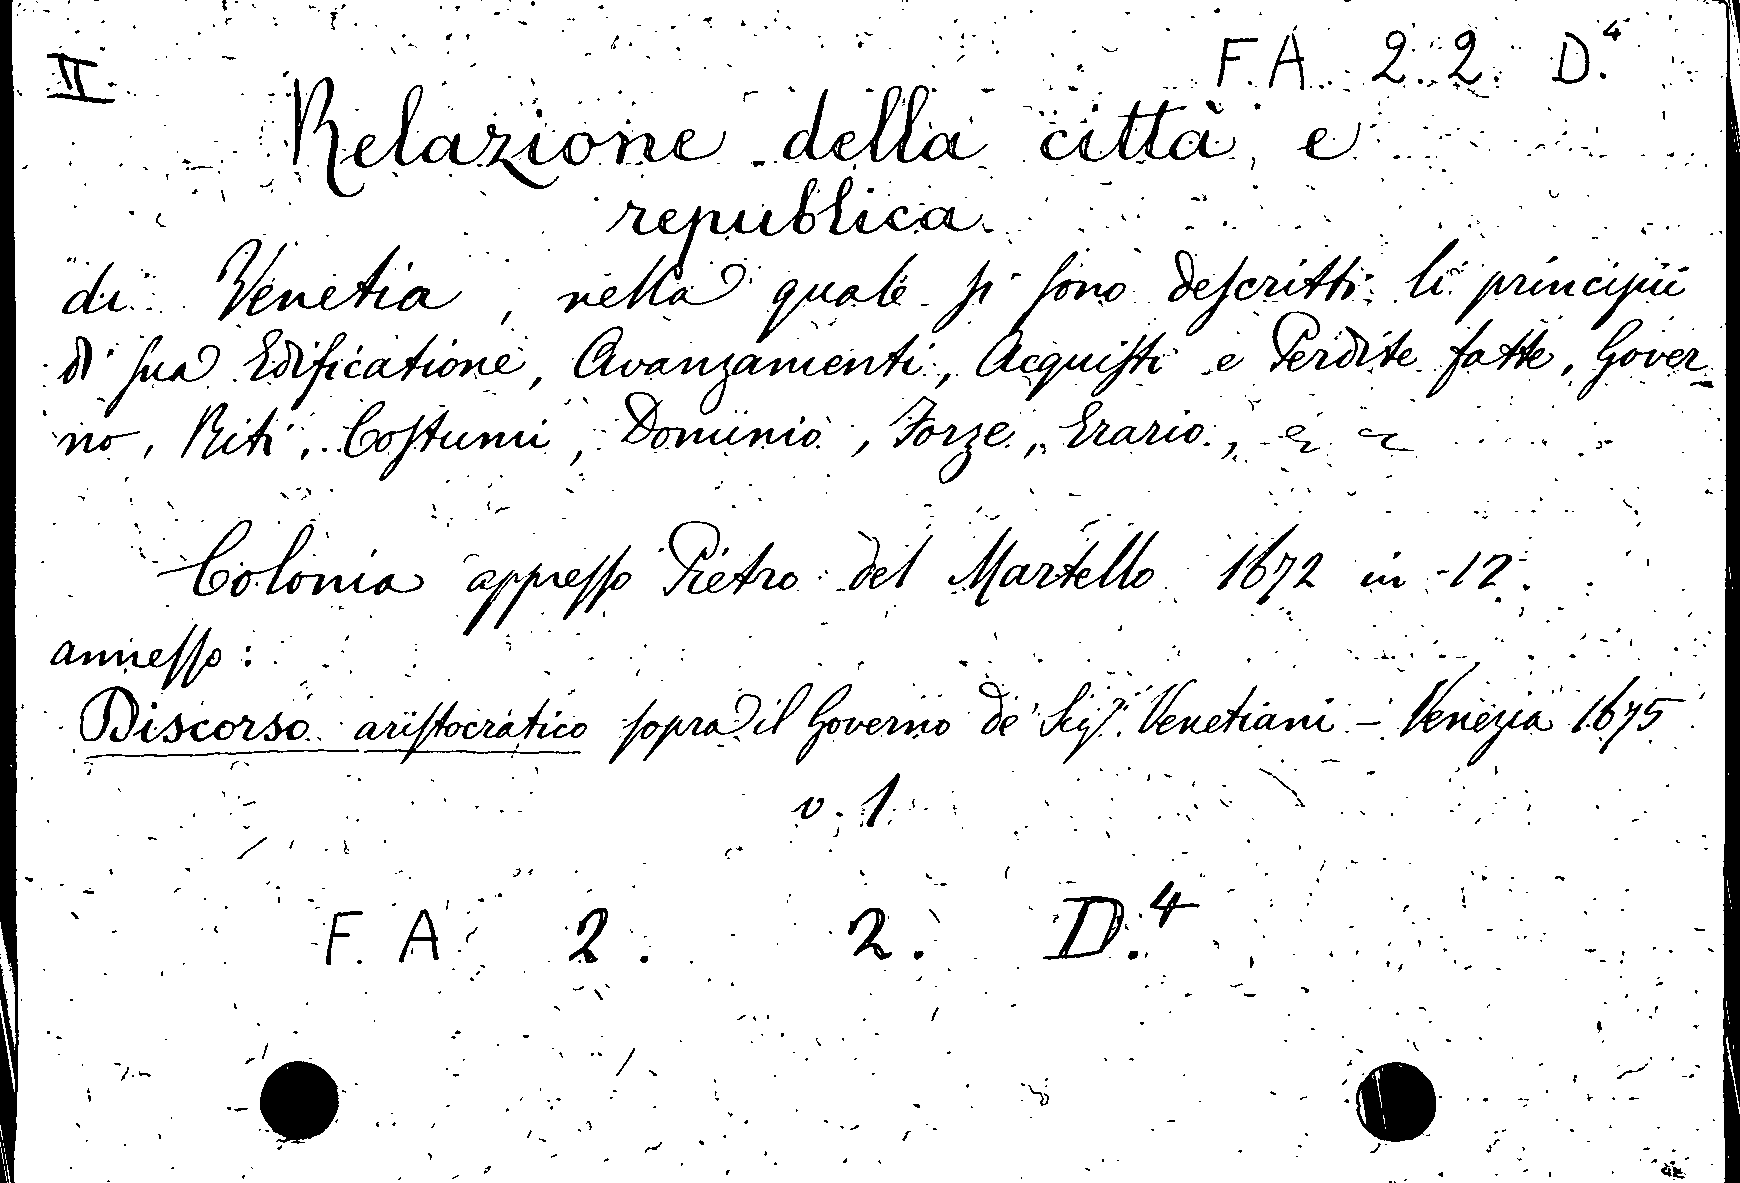 F. A. 2. 2. D.⁴
II.
Relazione della città e
republica
di Venetia, nella quale si sono descritti li principii
di sua Edificatione, Avanzamenti, Acquisti e Perdite fatte, Gover-
no, Riti, Costumi, Dominio, Forze, Erario,
Colonia appresso Pietro del Martello 1672 in-12.
annesso:
Discorso aristocratico sopra il Governo de' Sigri. Venetiani - Venezia 1675
v. 1
F. A 2. 2. D.⁴